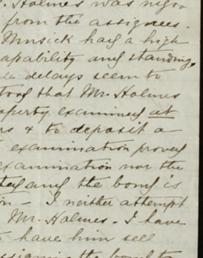 Holmes was
from the assignees
Musick had a high
capability and standing.
delays seem to
that Mr. Holmes
property examined at
& to deposit a
examination proved
examination nor the
and the bond is
- I neither attempt
Mr. Holmes. I have
to have him sell
the bond to